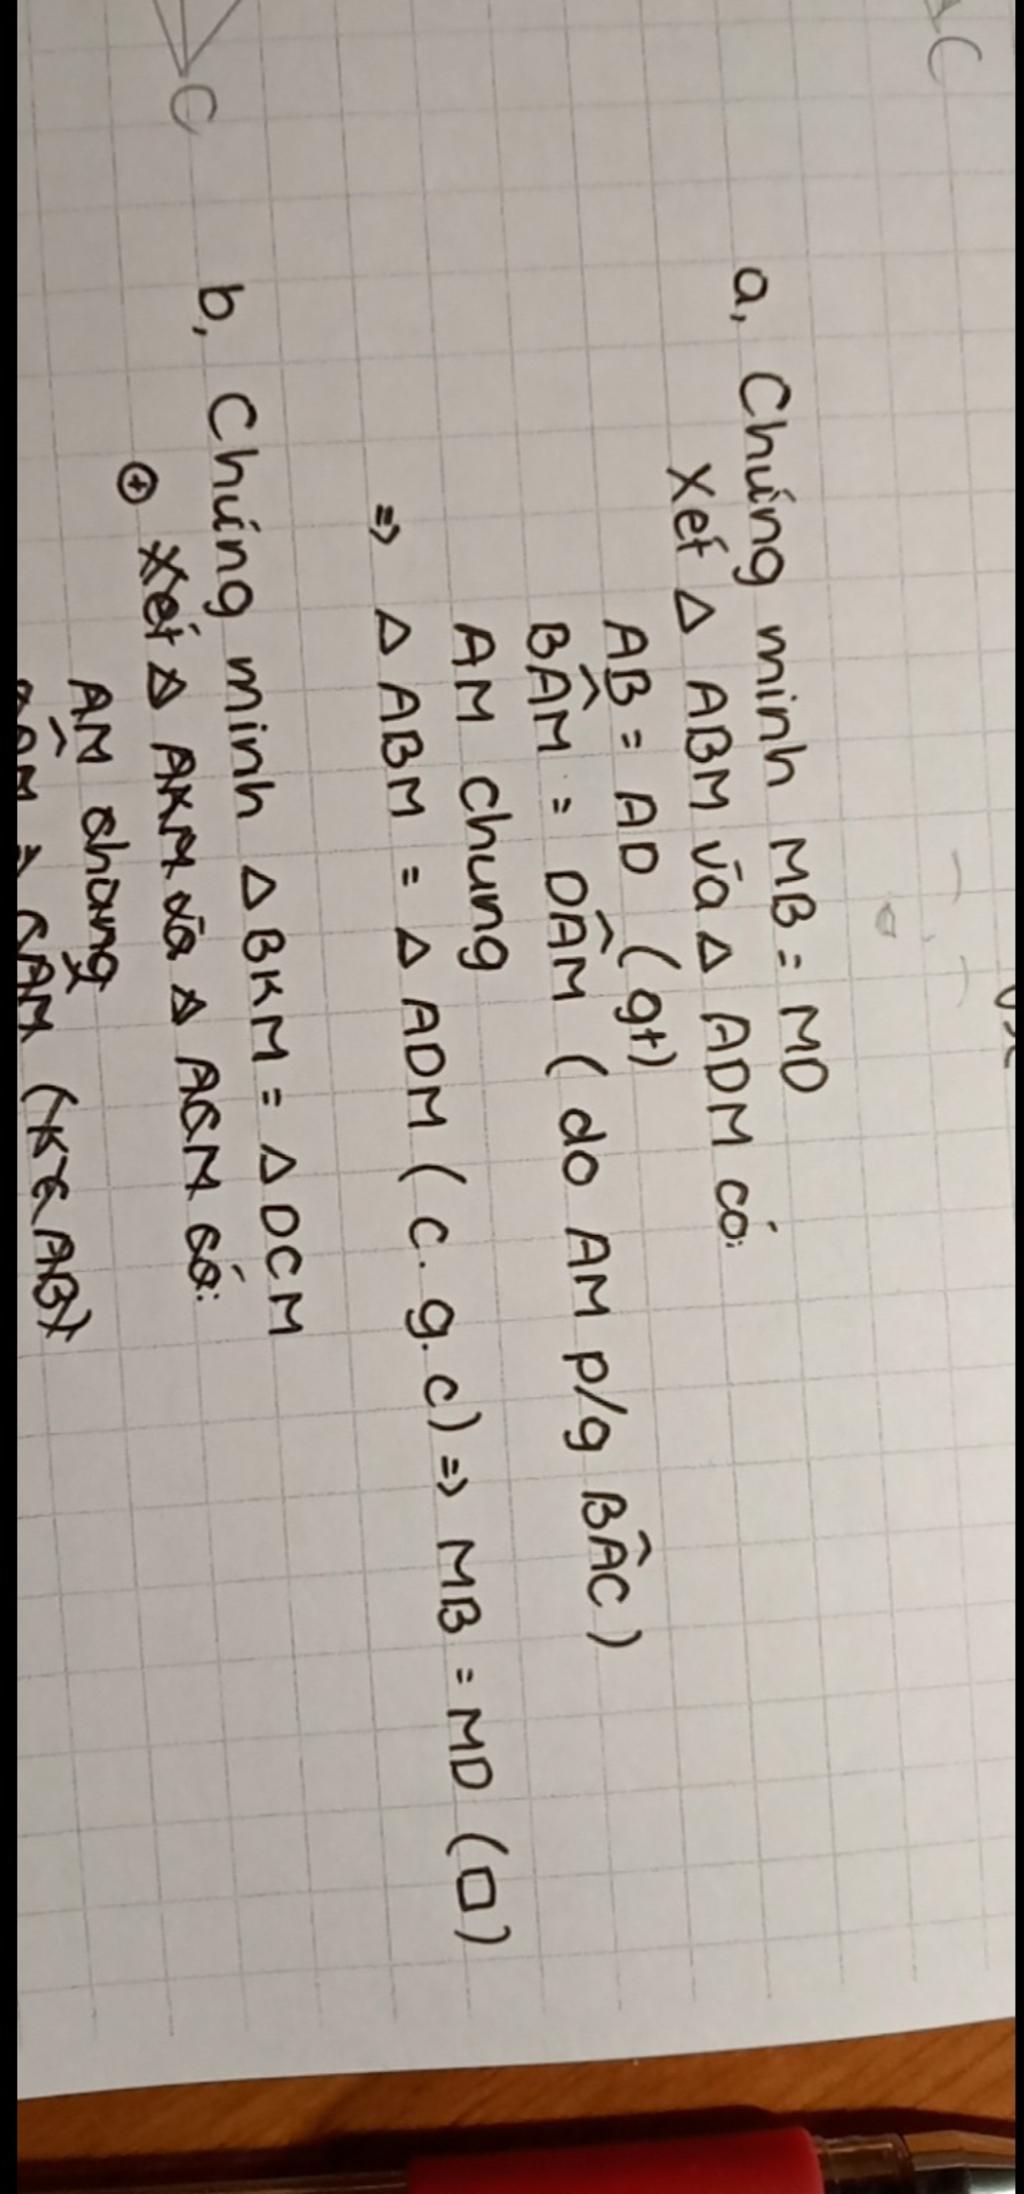 C
a, Chứng minh MB = MD
Xét Δ ABM và Δ ADM có:
AB = AD (gt)
BÂM = DÂM (do AM p/g BÂC)
AM chung
⇒ Δ ABM = Δ ADM (c.g.c) ⇒ MB = MD (□)
C
b, Chứng minh Δ BKM = Δ DCM
⊕ Xét Δ AKM và Δ ACM có:
AM chung
CÂM (K ∈ AB)